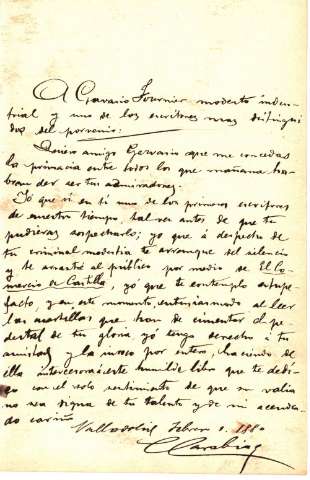 A Gervasio Fournier modesto indus-
trial y uno de los escritores mas distingui-
dos del porvenir:
Quiero amigo Gervasio que me concedas
la primacia entre todos los que mañana ha-
bran de ser tus admiradores:
Yó que ví en ti uno de los primeros escritores
de nuestro tiempo, tal vez antes de que tú
pudieras sospecharlo; yo que á despecho de
tu criminal modestia te arranqué del silencio
y te arrastré al público por medio de El Co-
mercio de Castilla, yó que te contemplo estupe-
facto, y en este momento, entusiasmado al leer
las cuartillas que han de cimentar el pe-
destal de tu gloria, yó tengo derecho á tu
amistad y la invoco por entero, haciendo de
ella intercesora este humilde libro que te dedi-
co con el solo sentimiento de que su valia
no sea digna de tu talento y de mi acendra-
do cariño
Valladolid Febrero 1880